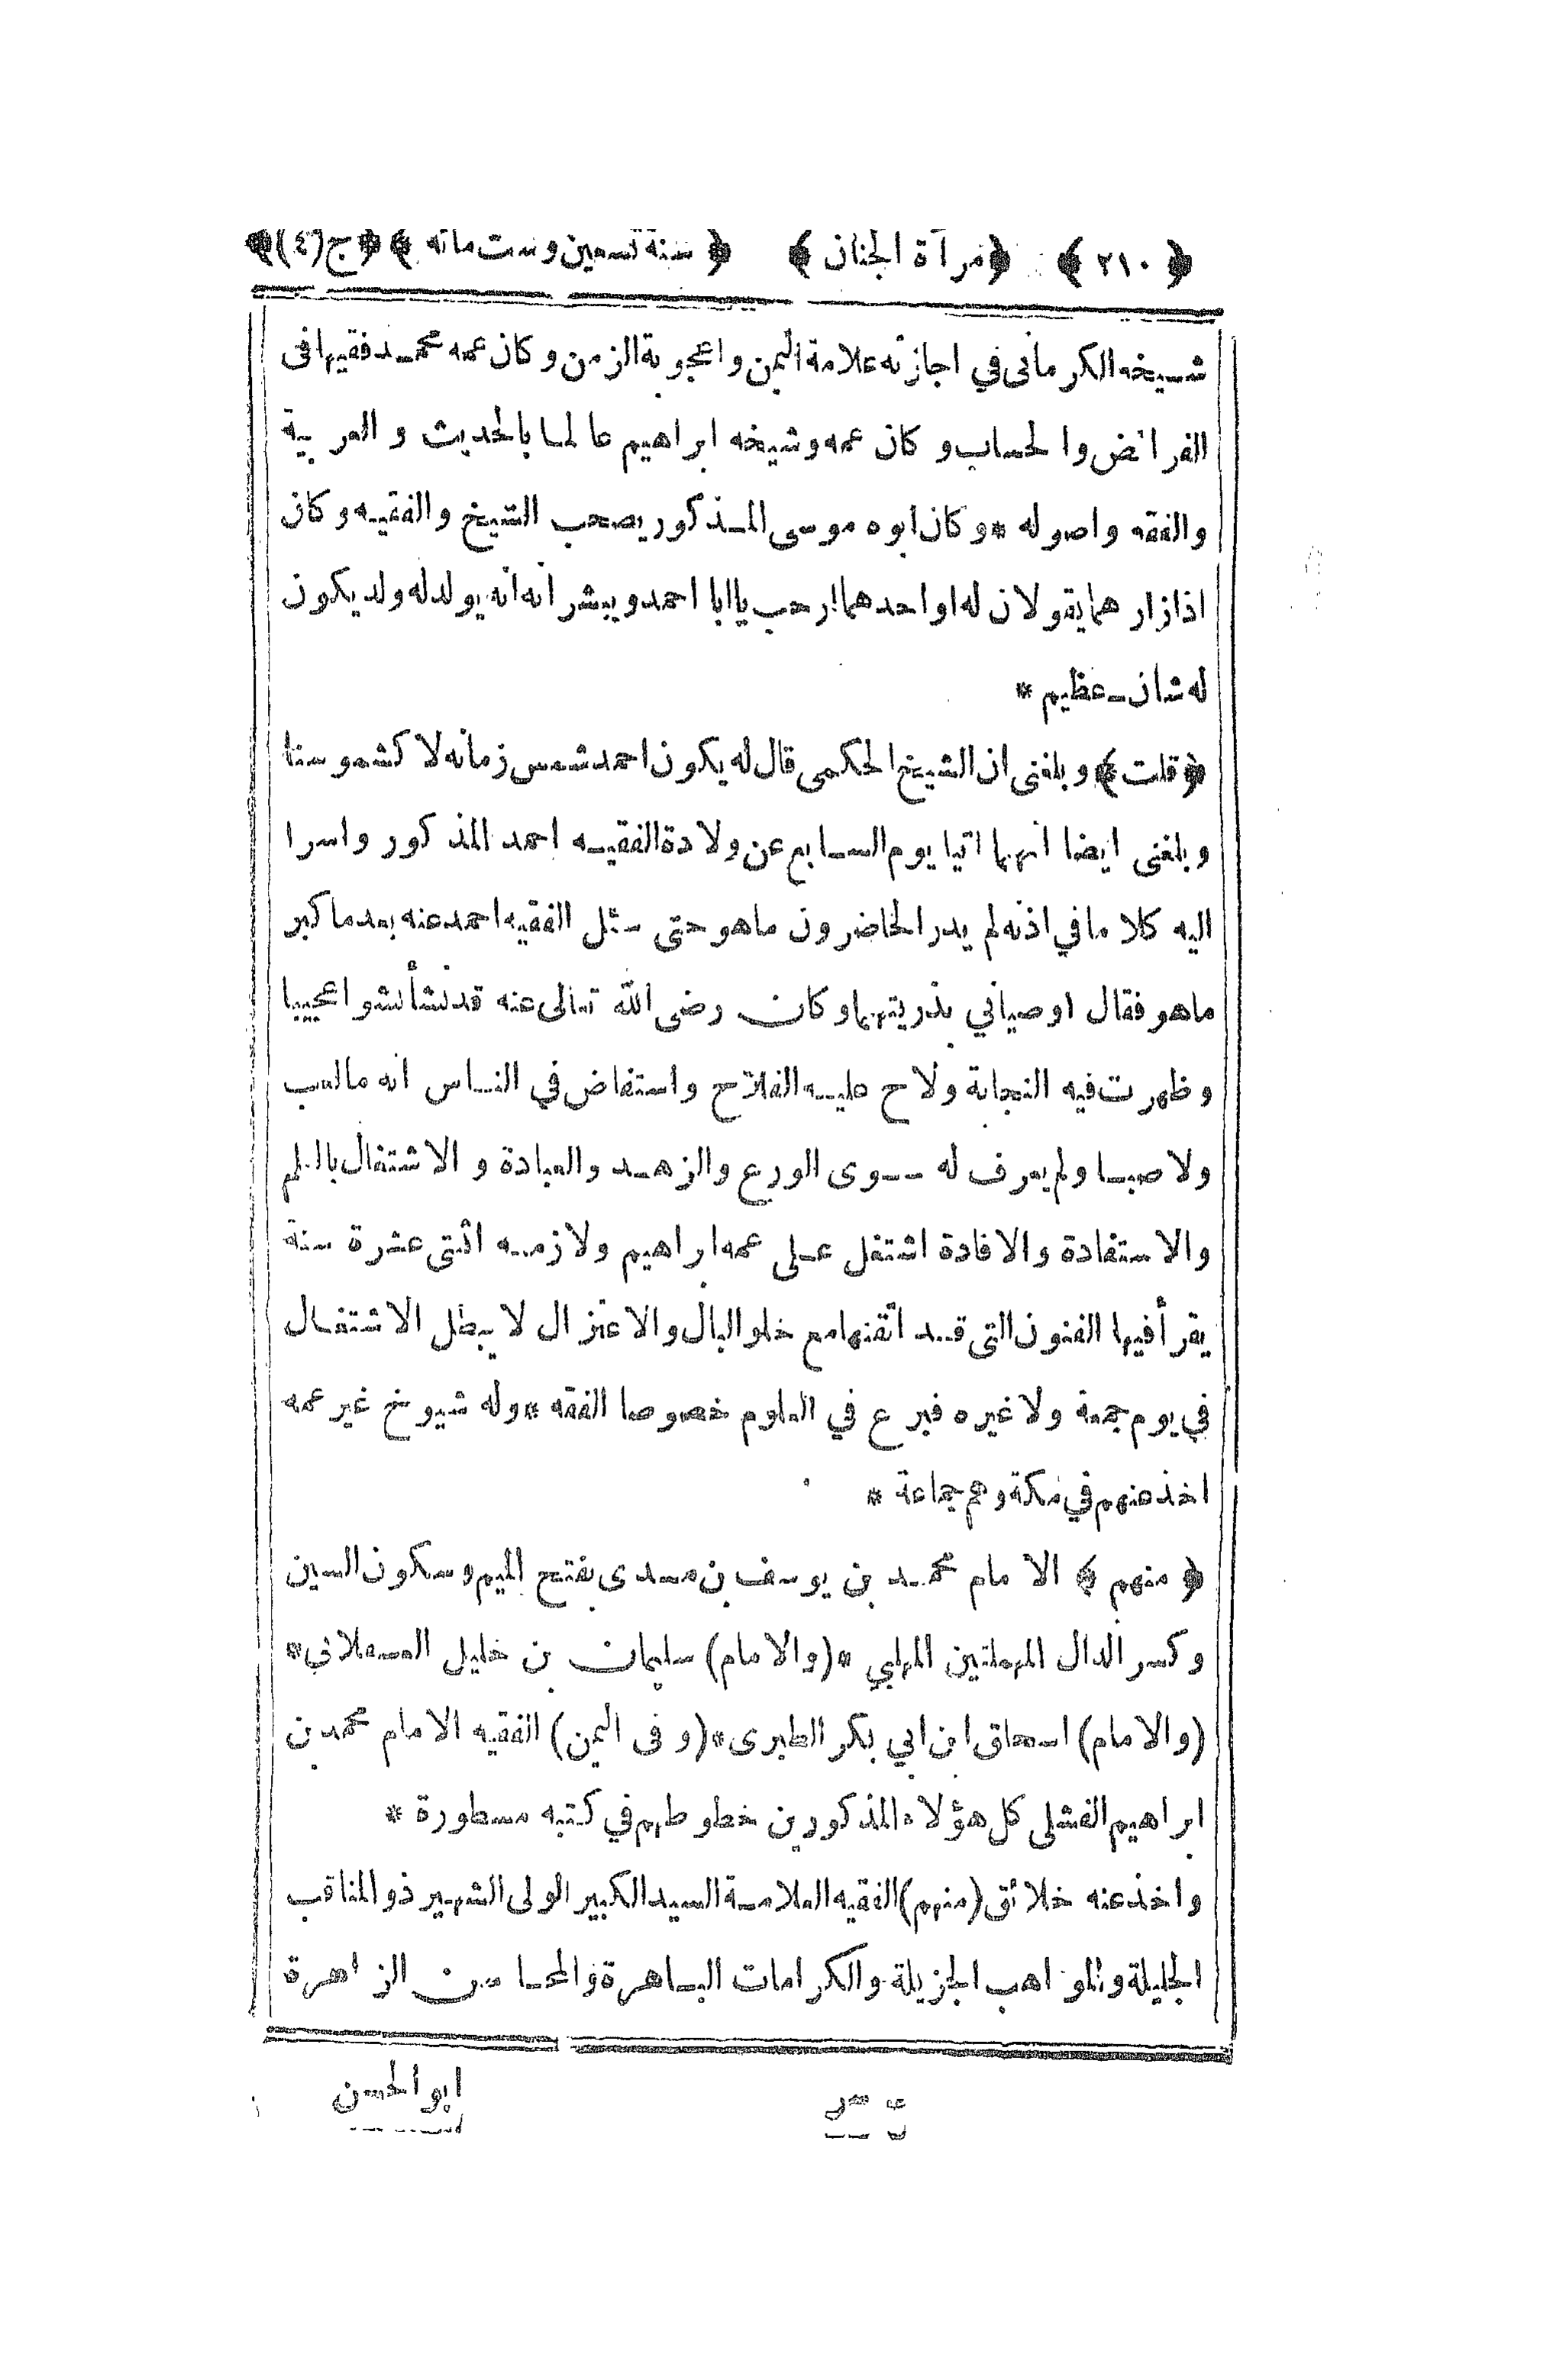 ﴿ ٢١٠ ﴾ ﴿ مرآة الجنان ﴾ ﴿ سنة تسعين وست مائه ﴾ ﴿ ج (٤) ﴾
شيخه الكرمانى في اجازته علامة اليمن واعجوبة الزمن وكان عمه محمد فقيها فى
الفرائض والحساب وكان عمه وشيخه ابراهيم عالما بالحديث والعربية
والفقه واصوله * وكان ابوه موسى المذكور يصحب الشيخ والفقيه وكان
اذا زارهما يقولان له او احدهما ارحب يا ابا احمد ويبشرانه انه يولد له ولد يكون
له شان عظيم *
﴿ قلت ﴾ وبلغنى ان الشيخ الحكمى قال له يكون احمد شمس زمانه لا كشموسنا
وبلغنى ايضا انهما اتيا يوم السابع عن ولادة الفقيه احمد المذكور واسرا
اليه كلاما في اذنه لم يدر الحاضرون ماهو حتى سئل الفقيه احمد عنه بعد ما كبر
ماهو فقال اوصياني بذريتهما وكان رضى الله تعالى عنه قد نشأ نشوا عجيبا
وظهرت فيه النجابة ولاح عليه الفلاح واستفاض في الناس انه مالعب
ولا صبا ولم يعرف له سوى الورع والزهد والعبادة والاشتغال بالعلم
والاستفادة والافادة اشتغل على عمه ابراهيم ولازمه اثنتى عشرة سنة
يقرأ فيها الفنون التى قد اتقنها مع خلو البال والاعتزال لا يبطل الاشتغال
في يوم جمعة ولا غيره فبرع في العلوم خصوصا الفقه * وله شيوخ غير عمه
اخذ عنهم في مكة وهم جماعة *
﴿ منهم ﴾ الامام محمد بن يوسف بن مسدى بفتح الميم وسكون السين
وكسر الدال المهملتين المهلبي * (والامام) سليمان بن خليل العسقلاني *
(والامام) اسحاق ابن ابي بكر الطبرى * (وفى اليمن) الفقيه الامام محمد بن
ابراهيم الفشلى كل هؤلاء المذكورين خطوطهم في كتبه مسطورة *
واخذ عنه خلائق (منهم) الفقيه العلامة السيد الكبير الولى الشهير ذو المناقب
الجليلة والمواهب الجزيلة والكرامات الباهرة والمحاسن الزاهرة
ابو الحسن